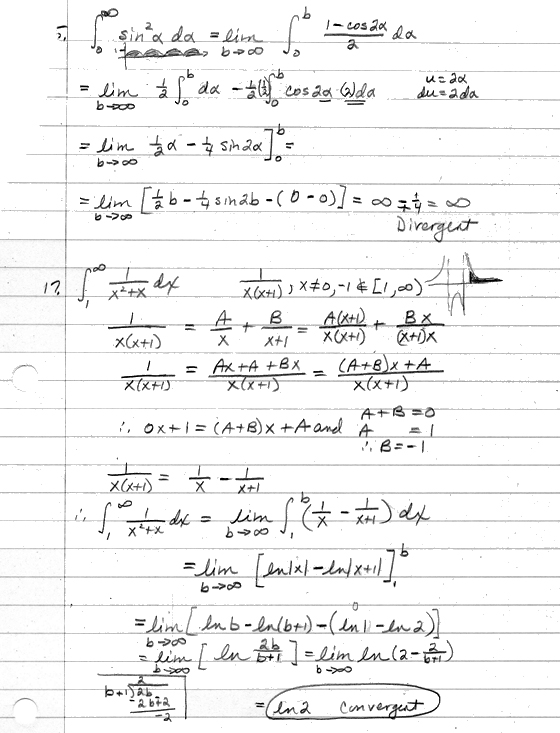 ∫₀^∞ sin²α dα = lim_{b→∞} ∫₀^b (1-cos2α)/2 dα
= lim_{b→∞} ½∫₀^b dα - ½(½)∫₀^b cos2α (2)dα    u = 2α
du = 2dα
= lim_{b→∞} ½α - ¼ sin2α]₀^b =
= lim_{b→∞} [½b - ¼ sin2b - (0-0)] = ∞ ∓ ¼ = ∞
Divergent
17. ∫₁^∞ 1/(x²+x) dx    1/(x(x+1)) ; x≠0,-1 ∉ [1,∞)
1/(x(x+1)) = A/x + B/(x+1) = A(x+1)/(x(x+1)) + Bx/((x+1)x)
1/(x(x+1)) = (Ax+A+Bx)/(x(x+1)) = ((A+B)x+A)/(x(x+1))
∴ 0x+1 = (A+B)x+A and A+B=0
A = 1
∴ B=-1
1/(x(x+1)) = 1/x - 1/(x+1)
∴ ∫₁^∞ 1/(x²+x) dx = lim_{b→∞} ∫₁^b (1/x - 1/(x+1)) dx
= lim_{b→∞} [ln|x| - ln|x+1|]₁^b
= lim_{b→∞} [ln b - ln(b+1) - (ln 1 - ln 2)]
0
= lim_{b→∞} [ln 2b/(b+1)] = lim_{b→∞} ln(2 - 2/(b+1))
2
b+1)2b
-2b+2
-2
= ln2 convergent